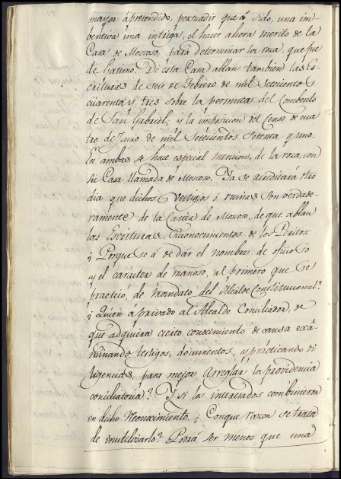 mayor à pretendido, persuadir que à sido, una in
ventiva una intriga, el hacer ahora merito de la
Casa de Moroso, para determinar la roca, que fue
de Gatino. De esta Casa ablan tambien las Es
crituras de seis de Febrero de mil setecientos
cuarenta y tres sobre la permuta del Convento
de San Gabriel, y la imposicion del Censo de cua
tro de Junio de mil setecientos setenta y uno.
En ambas se hace especial mencion, de la roca con
su Casa llamada de Moroso. Ya se acreditara otro
dia que dichos vestijios ó ruinas son verdade
ramente de la Casita de Moroso, de que ablan
las Escrituras y reconocimientos de los Peritos
¿ Porque se á de dar el nombre de oficioso
y el caracter de manoso, al primero que se
practicó, de mandato del Alcalde Constitucional?
¿ Quien a privado al Alcalde Conciliador, de
que adquiera cierto conocimiento de causa exa
minando testigos, documentos, y practicando di
ligencias, para mejor arreglar la providencia
conciliatoria? Y si los interesados combinieron
en dicho reconocimiento, ¿ Conque razon se trata
de inutilizarlo? Podrá ser menos que una